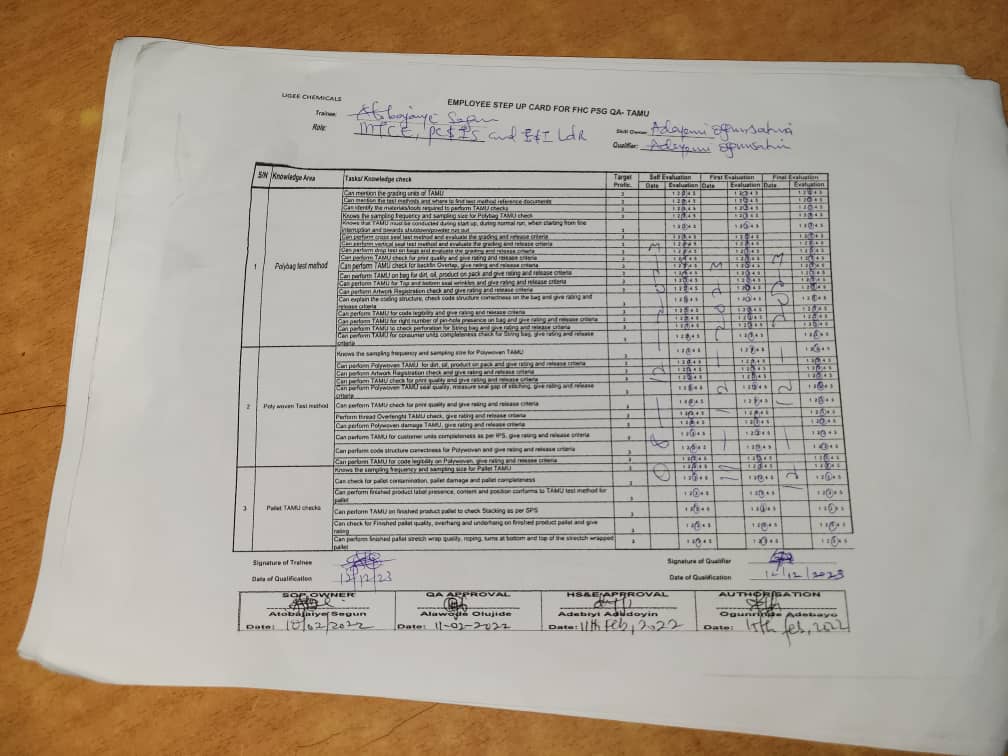 LIGEE CHEMICALS
EMPLOYEE STEP UP CARD FOR FHC PSG QA- TAMU
Trainee: Atobajaiye Segun
Role: MTCE, PC&IS and E&I LdR
Skill Owner: Adeyemi Ogunsahin
Qualifier: Adeyemi Ogunsahin
S/N Knowledge Area Tasks/ Knowledge check Target Profic. Self Evaluation First Evaluation Final Evaluation
Date Evaluation Date Evaluation Date Evaluation
1 Polybag test method
Can mention the grading units of TAMU 3 1 2 3 4 5 1 2 3 4 5 1 2 3 4 5
Can mention the test methods and where to find test method reference documents 3 1 2 3 4 5 1 2 3 4 5 1 2 3 4 5
Can identify the materials/tools required to perform TAMU checks 3 1 2 3 4 5 1 2 3 4 5 1 2 3 4 5
Knows the sampling frequency and sampling size for Polybag TAMU check 3 1 2 3 4 5 1 2 3 4 5 1 2 3 4 5
Knows that TAMU must be conducted during start up, during normal run, when starting from line
interruption and towards shutdown/powder run out 3 1 2 3 4 5 1 2 3 4 5 1 2 3 4 5
Can perform cross seal test method and evaluate the grading and release criteria 3 1 2 3 4 5 1 2 3 4 5 1 2 3 4 5
Can perform vertical seal test method and evaluate the grading and release criteria 3 1 2 3 4 5 1 2 3 4 5 1 2 3 4 5
Can perform drop test on bags and evaluate the grading and release criteria 3 1 2 3 4 5 1 2 3 4 5 1 2 3 4 5
Can perform TAMU check for print quality and give rating and release criteria 3 1 2 3 4 5 1 2 3 4 5 1 2 3 4 5
Can perform TAMU check for backfin Overlap, give rating and release criteria 3 1 2 3 4 5 1 2 3 4 5 1 2 3 4 5
Can perform TAMU on bag for dirt, oil, product on pack and give rating and release criteria 3 1 2 3 4 5 1 2 3 4 5 1 2 3 4 5
Can perform TAMU for Top and bottom seal wrinkles and give rating and release criteria 3 1 2 3 4 5 1 2 3 4 5 1 2 3 4 5
Can perform Artwork Registration check and give rating and release criteria 3 1 2 3 4 5 1 2 3 4 5 1 2 3 4 5
Can explain the coding structure, check code structure correctness on the bag and give rating and
release criteria 3 1 2 3 4 5 1 2 3 4 5 1 2 3 4 5
Can perform TAMU for code legibility and give rating and release criteria 3 1 2 3 4 5 1 2 3 4 5 1 2 3 4 5
Can perform TAMU for right number of pin-hole presence on bag and give rating and release criteria 3 1 2 3 4 5 1 2 3 4 5 1 2 3 4 5
Can perform TAMU to check perforation for String bag and give rating and release criteria 3 1 2 3 4 5 1 2 3 4 5 1 2 3 4 5
Can perform TAMU for consumer units completeness check for String bag, give rating and release
criteria 3 1 2 3 4 5 1 2 3 4 5 1 2 3 4 5
2 Poly woven Test method
Knows the sampling frequency and sampling size for Polywoven TAMU 3 1 2 3 4 5 1 2 3 4 5 1 2 3 4 5
Can perform Polywoven TAMU for dirt, oil, product on pack and give rating and release criteria 3 1 2 3 4 5 1 2 3 4 5 1 2 3 4 5
Can perform Artwork Registration check and give rating and release criteria 3 1 2 3 4 5 1 2 3 4 5 1 2 3 4 5
Can perform TAMU check for print quality and give rating and release criteria 3 1 2 3 4 5 1 2 3 4 5 1 2 3 4 5
Can perform Polywoven TAMU seal quality, measure seal gap of stitching, give rating and release
criteria 3 1 2 3 4 5 1 2 3 4 5 1 2 3 4 5
Can perform TAMU check for print quality and give rating and release criteria 3 1 2 3 4 5 1 2 3 4 5 1 2 3 4 5
Perform thread Overlenght TAMU check, give rating and release criteria 3 1 2 3 4 5 1 2 3 4 5 1 2 3 4 5
Can perform Polywoven damage TAMU, give rating and release criteria 3 1 2 3 4 5 1 2 3 4 5 1 2 3 4 5
Can perform TAMU for customer units completeness as per IPS, give rating and release criteria 3 1 2 3 4 5 1 2 3 4 5 1 2 3 4 5
Can perform code structure correctness for Polywoven and give rating and release criteria 3 1 2 3 4 5 1 2 3 4 5 1 2 3 4 5
Can perform TAMU for code legibility on Polywoven, give rating and release criteria 3 1 2 3 4 5 1 2 3 4 5 1 2 3 4 5
3 Pallet TAMU checks
Knows the sampling frequency and sampling size for Pallet TAMU 3 1 2 3 4 5 1 2 3 4 5 1 2 3 4 5
Can check for pallet contamination, pallet damage and pallet completeness 3 1 2 3 4 5 1 2 3 4 5 1 2 3 4 5
Can perform finished product label presence, content and position conforms to TAMU test method for
pallet 3 1 2 3 4 5 1 2 3 4 5 1 2 3 4 5
Can perform TAMU on finished product pallet to check Stacking as per SPS 3 1 2 3 4 5 1 2 3 4 5 1 2 3 4 5
Can check for Finished pallet quality, overhang and underhang on finished product pallet and give
rating 3 1 2 3 4 5 1 2 3 4 5 1 2 3 4 5
Can perform finished pallet stretch wrap quality, roping, turns at bottom and top of the strectch wrapped
pallet 3 1 2 3 4 5 1 2 3 4 5 1 2 3 4 5
Signature of Trainee
Signature of Qualifier
Date of Qualification 12/12/23
Date of Qualification 12/12/2023
SOP OWNER QA APPROVAL HS&E APPROVAL AUTHORISATION
Atobajaiye Segun Alawode Olujide Adebiyi Adedoyin Adebayo
Date: 10/02/2022 Date: 11-02-2022 Date: 11th Feb, 2022 Date: 15th feb, 2022